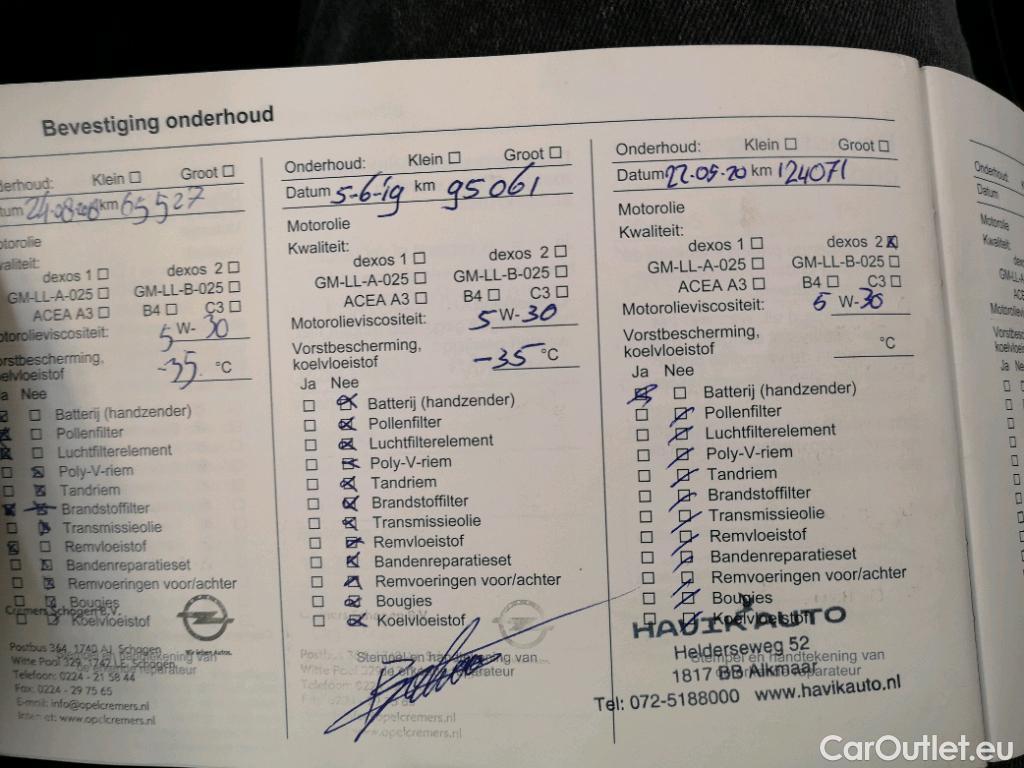 Bevestiging onderhoud
derhoud: Klein Groot
tum 24-08-2018 km 65527
otorolie
waliteit:
dexos 1 dexos 2
GM-LL-A-025 GM-LL-B-025
ACEA A3 B4 C3
Motorolieviscositeit: 5 W- 30
orstbescherming,
oelvloeistof -35 °C
Ja Nee
Batterij (handzender)
Pollenfilter
Luchtfilterelement
Poly-V-riem
Tandriem
Brandstoffilter
Transmissieolie
Remvloeistof
Bandenreparatieset
Remvoeringen voor/achter
Bougies
Koelvloeistof
Cremers Schagen B.V.
Wir leben Autos.
Postbus 364, 1740 AJ Schagen
Witte Paal 329, 1742 LE Schagen
Stempel en handtekening van
de erkende reparateur
Telefoon: 0224 - 21 58 44
Fax: 0224 - 29 75 65
E-mail: info@opelcremers.nl
Internet: www.opelcremers.nl
Onderhoud: Klein Groot
Datum 5-6-19 km 95061
Motorolie
Kwaliteit:
dexos 1 dexos 2
GM-LL-A-025 GM-LL-B-025
ACEA A3 B4 C3
Motorolieviscositeit: 5 W- 30
Vorstbescherming,
koelvloeistof -35 °C
Ja Nee
Batterij (handzender)
Pollenfilter
Luchtfilterelement
Poly-V-riem
Tandriem
Brandstoffilter
Transmissieolie
Remvloeistof
Bandenreparatieset
Remvoeringen voor/achter
Bougies
Koelvloeistof
Stempel en handtekening van
de erkende reparateur
www.opelcremers.nl
Onderhoud: Klein Groot
Datum 22-05-20 km 124071
Motorolie
Kwaliteit:
dexos 1 dexos 2
GM-LL-A-025 GM-LL-B-025
ACEA A3 B4 C3
Motorolieviscositeit: 5 W- 30
Vorstbescherming,
koelvloeistof °C
Ja Nee
Batterij (handzender)
Pollenfilter
Luchtfilterelement
Poly-V-riem
Tandriem
Brandstoffilter
Transmissieolie
Remvloeistof
Bandenreparatieset
Remvoeringen voor/achter
Bougies
Koelvloeistof
HAVIK AUTO
Helderseweg 52
Stempel en handtekening van
1817 BB Alkmaar
reparateur
Tel: 072-5188000 www.havikauto.nl
Onderhoud:
Datum
Motorolie
Kwaliteit:
GM-LL-A
ACE
Motorolievis
Vorstbesche
koelvloeistof
Ja Nee
CarOutlet.eu